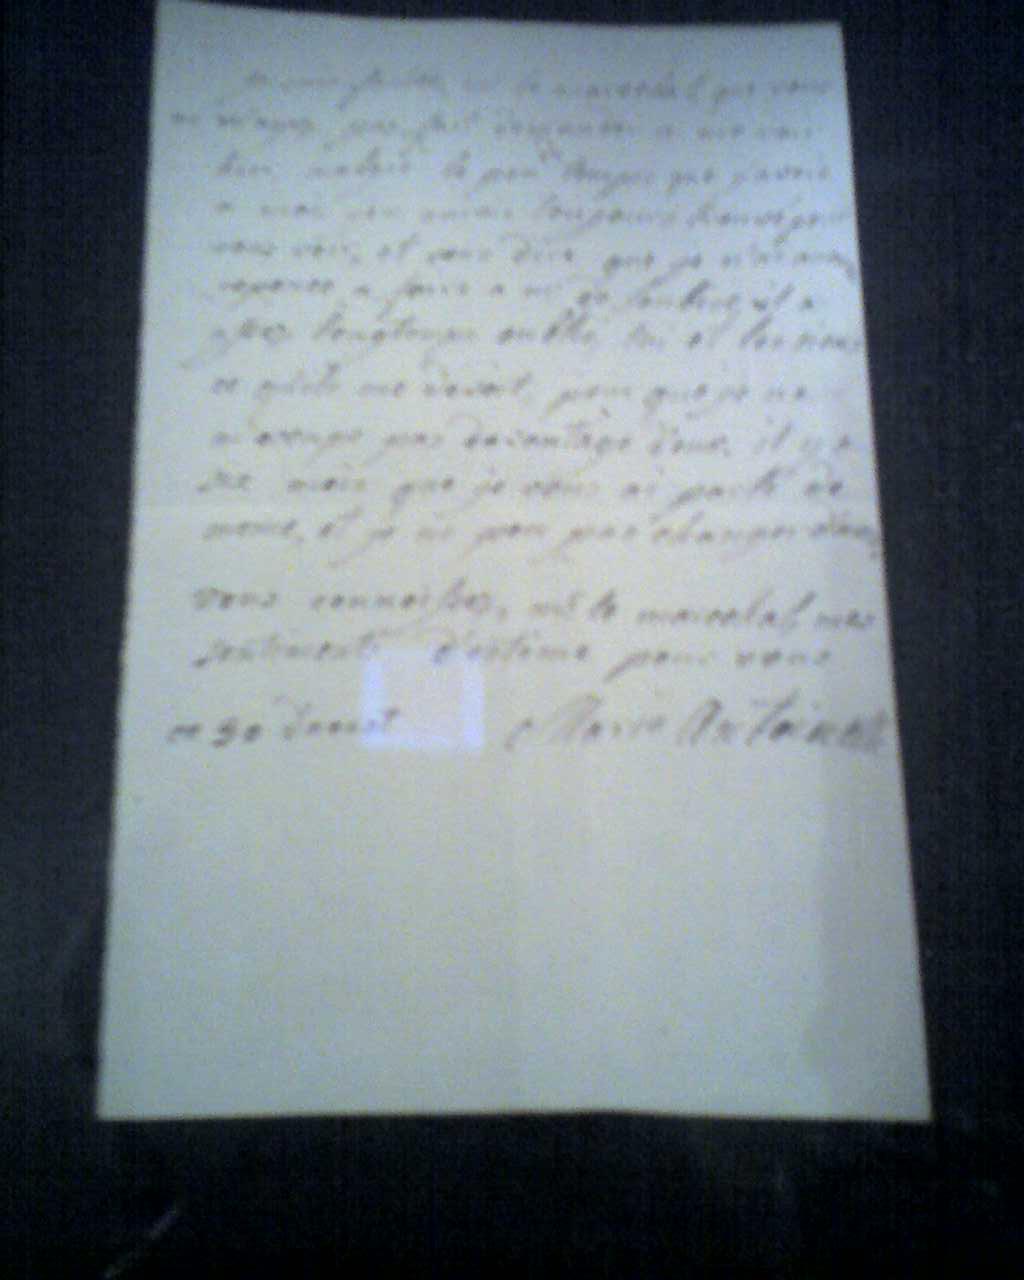 je suis fachée, mr le marechal que vous
ne m'ayez pas fait demander a me voir
hier malgré le peu de temps que j'avois
a moi j'en aurois toujours trouvé pour
vous voir, et vous dire que je n'ai
reponce a faire a mr de il a
assez longtemps oublié, lui et les siens
ce qu'ils me devoit, pour que je ne
m'occupe pas davantage d'eux. il y a
six mois que je vous ai parlé de
meme, et je ne peu pas changer
vous connoissez, mr le marechal, mes
sentiments d'estime pour vous
ce 30 d'aoust Marie Antoinette